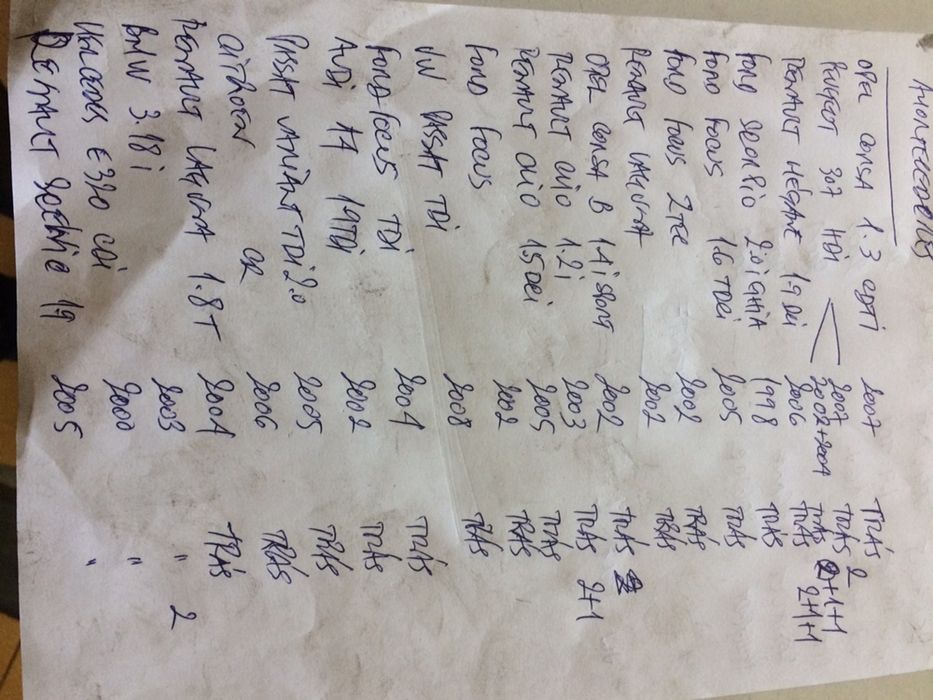 AMORTECEDORES
OPEL CORSA 1.3 CDTI 2007 TRÁS 2
PEUGEOT 307 HDI 2007 TRÁS 2+1+1
2002+2004 TRÁS 2+1+1
RENAULT MEGANE 19 DCI 2006 TRÁS
FORD SCORPIO 2.0i GHIA 1998 TRÁS
FORD FOCUS 1.6 TDCI 2005 TRÁS
FORD FOCUS ZTEC 2002 TRÁS
RENAULT LAGUNA 2002 TRÁS
OPEL CORSA B 1.4i SPORT 2002 TRÁS
RENAULT CLIO 1.2i 2003 TRÁS 2+1
RENAULT CLIO 15DCI 2005 TRÁS
FORD FOCUS 2002 TRÁS
VW PASSAT TDI 2008 TRÁS
FORD FOCUS TDI 2004 TRÁS
AUDI A4 19TDI 2002 TRÁS
PASSAT VARIANT TDI 2.0 2005 TRÁS
CITROEN 2006 TRÁS
RENAULT LAGUNA 1.8T 2004 TRÁS
BMW 318i 2003 " 2
MERCEDES E320 CDI 2000 "
RENAULT SCENIC 19 2005 "